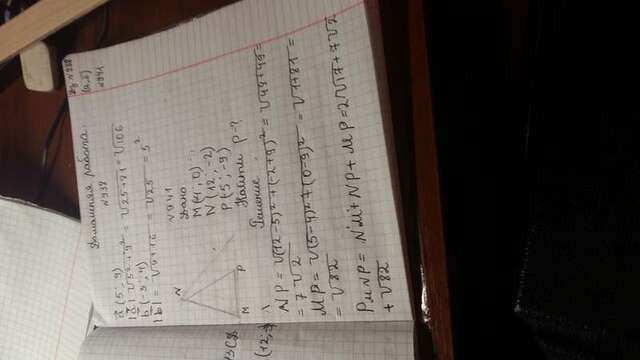 Домашняя работа.
№938
a (5; 9)
|a| √5²+9² = √25+81 = √106
b (-3; 4)
|b| = √9+16 = √25 = 5
№941
Дано:
M(4; 0)
N(12; -2)
P(5; -9)
Найти P-?
Решение:
NP = √(12-5)²+(-2+9)² = √49+49 =
= 7√2
MP = √(5-4)²+(0-9)² = √1+81 =
= √82
P MNP = NM + NP + MP = 2√17 + 7√2
+ √82
N
M
P
№938
№941
(12;